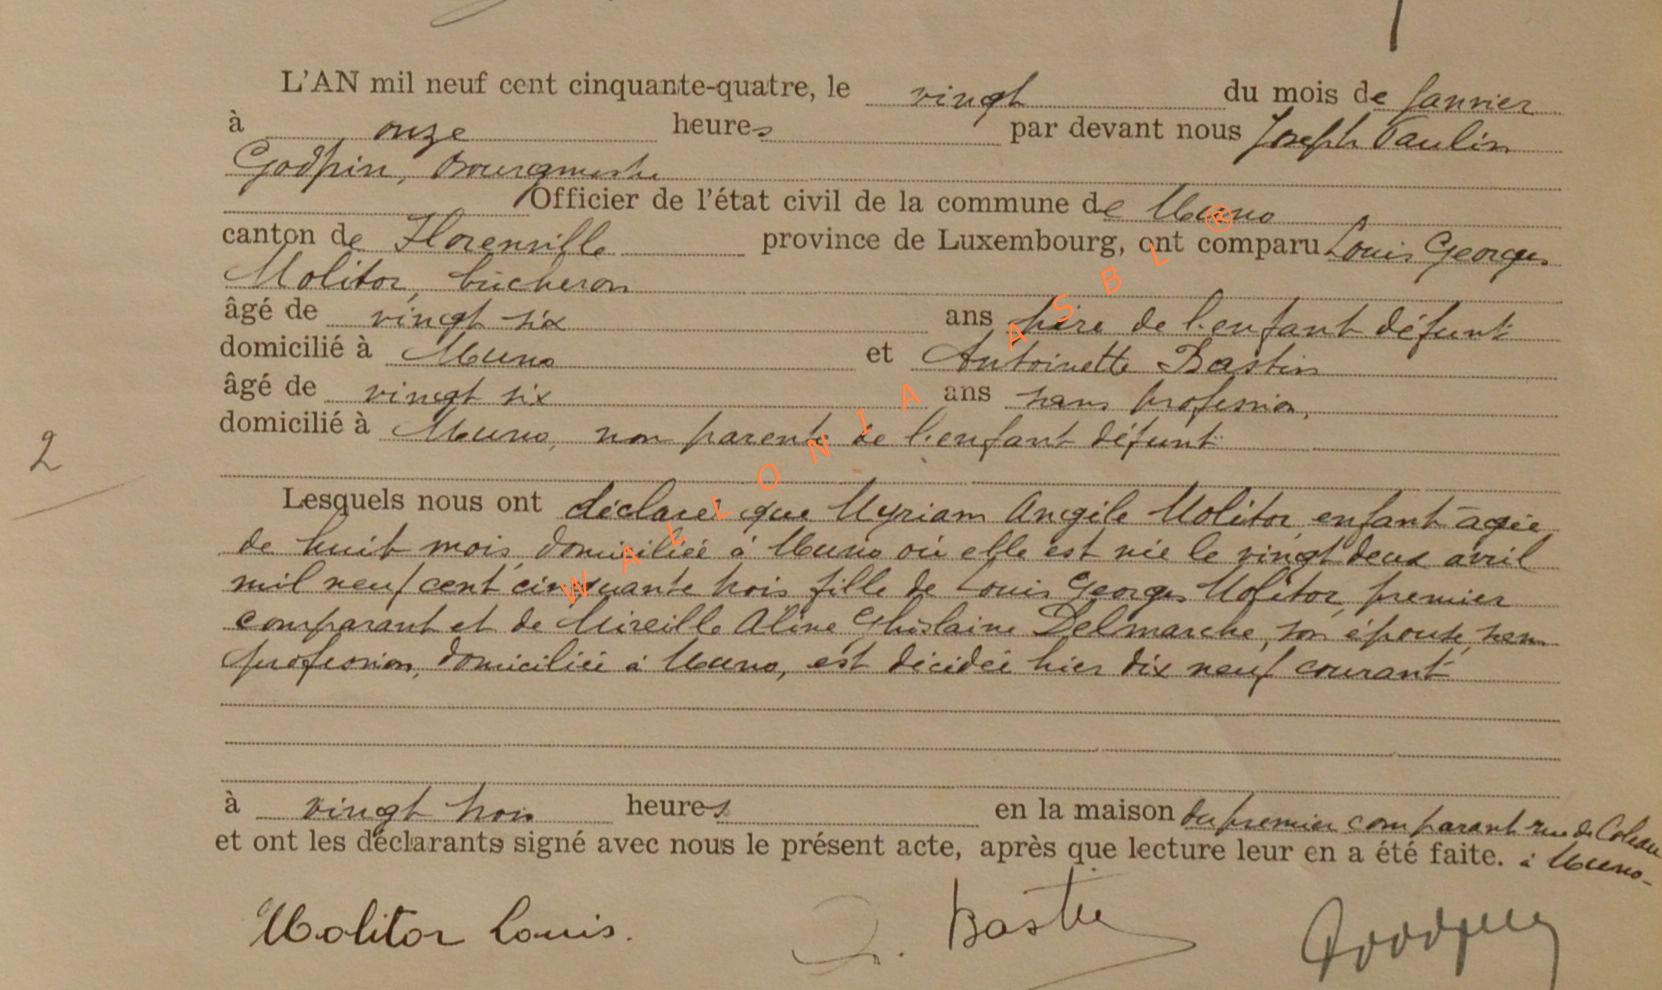 L'AN mil neuf cent cinquante-quatre, le vingt du mois de Janvier
à onze heures par devant nous Joseph Paulin
Godfrin, Bourgmestre
Officier de l'état civil de la commune de Muno
canton de Florenville province de Luxembourg, ont comparu Louis Georges
Molitor, bûcheron
âgé de vingt six ans père de l'enfant défunt
domicilié à Muno et Antoinette Bastin
âgé de vingt six ans sans profession,
domicilié à Muno, non parente de l'enfant défunt
2
Lesquels nous ont déclaré que Myriam Angèle Molitor, enfant âgée
de huit mois, domiciliée à Muno où elle est née le vingt deux avril
mil neuf cent cinquante trois fille de Louis Georges Molitor, premier
comparant et de Mireille Aline Ghislaine Delmarche, son épouse, sans
profession, domiciliée à Muno, est décédée hier dix neuf courant
à vingt trois heures en la maison du premier comparant rue de
et ont les déclarants signé avec nous le présent acte, après que lecture leur en a été faite. à Muno-
Molitor Louis. Bastin
WALLONIA ASBL ®